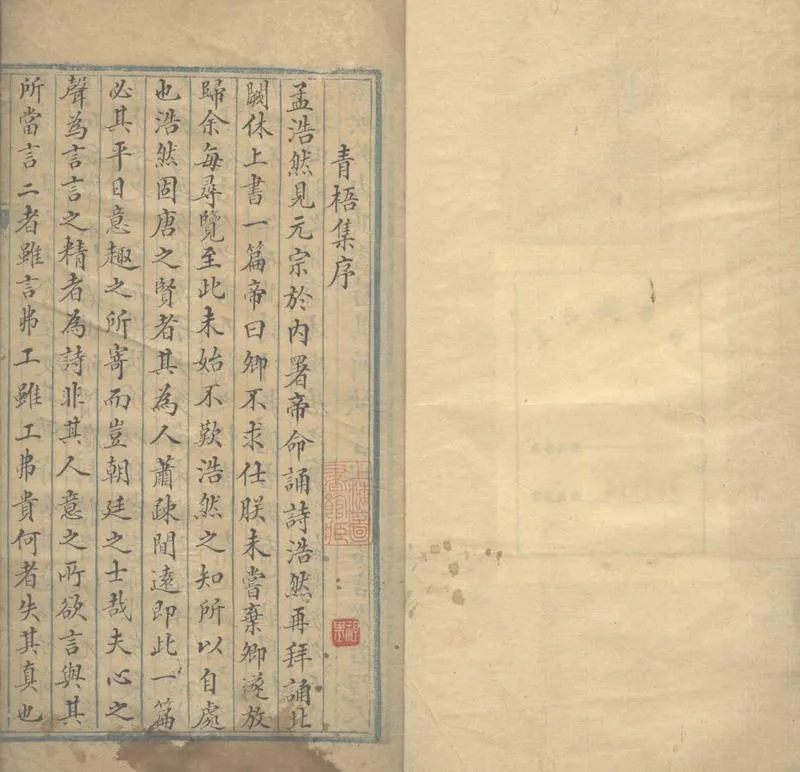 青梧集序
孟浩然見元宗於內署帝命誦詩浩然再拜誦北
闕休上書一篇帝曰卿不求仕朕未嘗棄卿遂放
歸余每尋覽至此未始不歎浩然之知所以自處
也浩然固唐之賢者其為人蕭疎閒遠即此一篇
必其平日意趣之所寄而豈朝廷之士哉夫心之
聲為言言之精者為詩非其人意之所欲言與其
所當言二者雖言弗工雖工弗貴何者失其真也